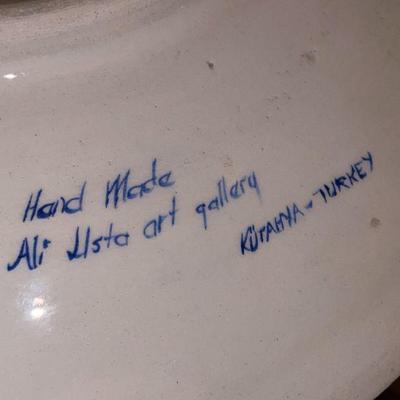 Hand Made
Ali Usta art gallery
KÜTAHYA - TURKEY